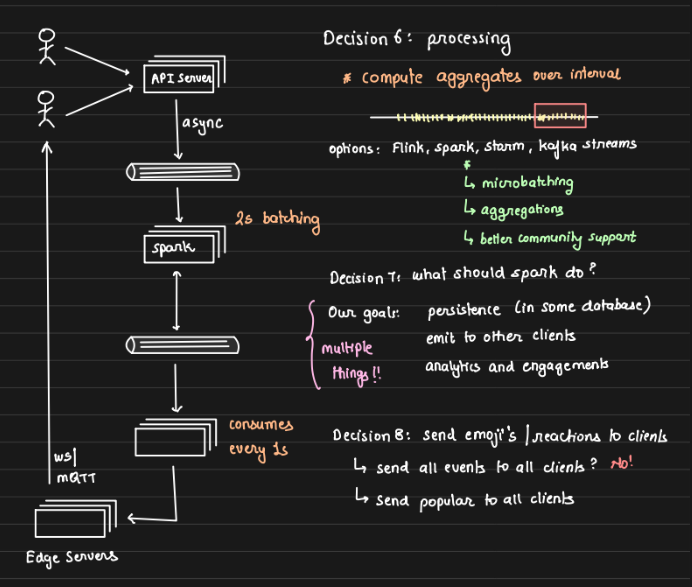 API Server
async
2s batching
spark
consumes
every 1s
ws|
MQTT
Edge Servers
Decision 6: processing
* compute aggregates over interval
options: Flink, spark, storm, kafka streams
*
↳ microbatching
↳ aggregations
↳ better community support
Decision 7: what should spark do?
Our goals: persistence (in some database)
multiple emit to other clients
things!! analytics and engagements
Decision 8: send emoji's | reactions to clients
↳ send all events to all clients? No!
↳ send popular to all clients